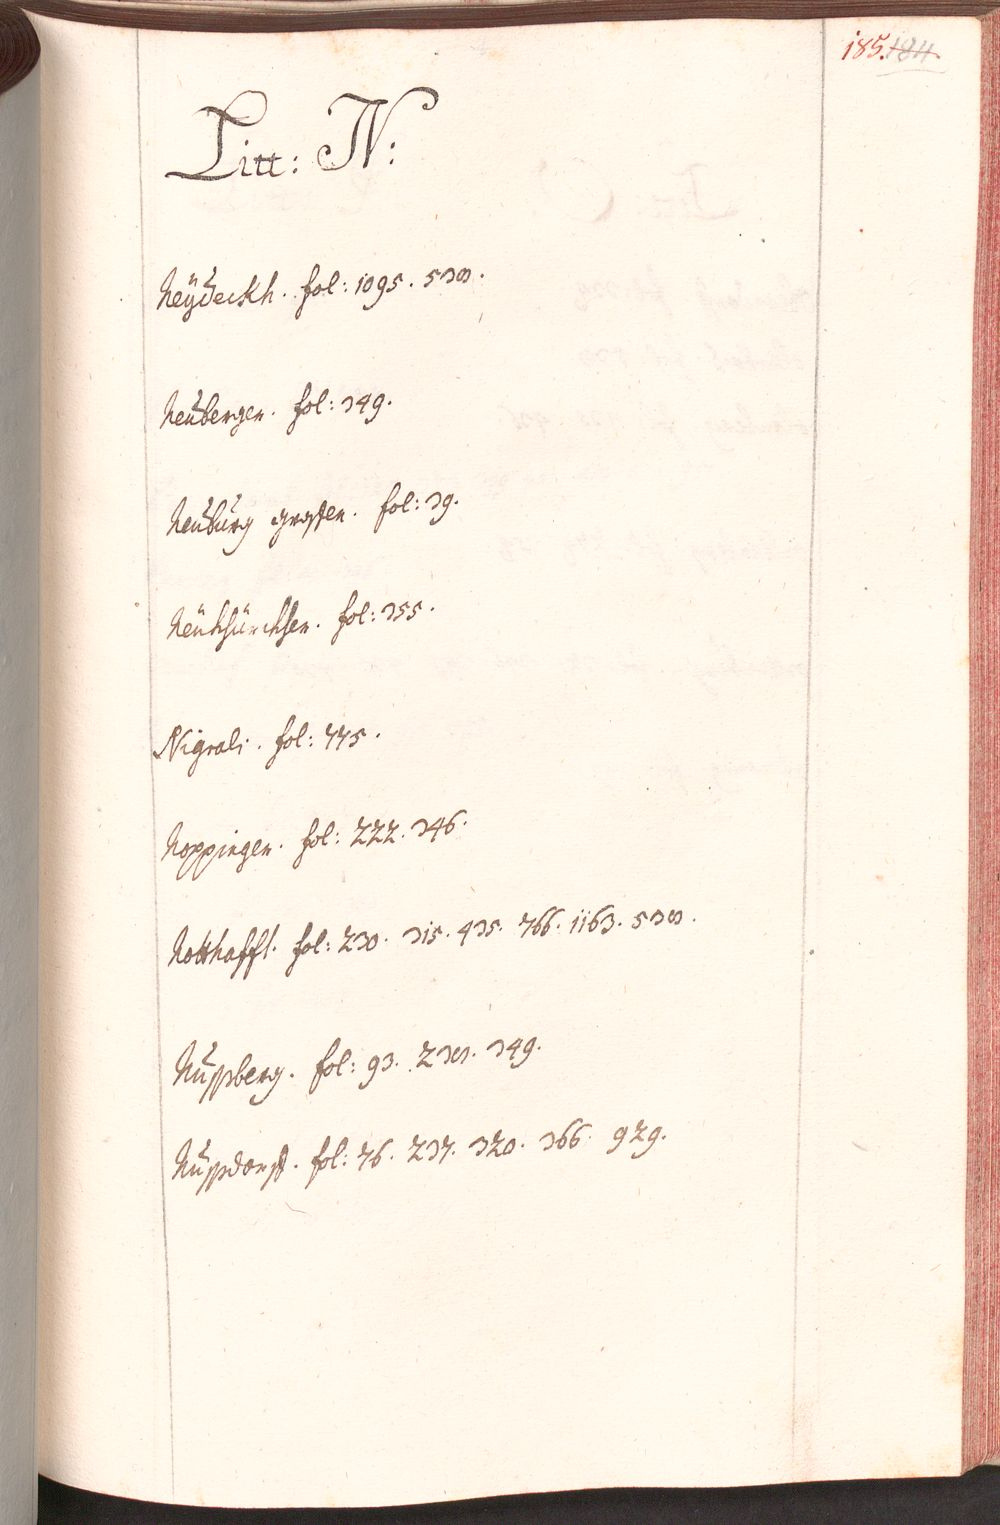 185. 184.
Litt: N:
Neÿdeckh. fol: 1095. 538.
Neubergen. fol: 349.
Neuburg graffen. fol: 39.
Neükhürchen. fol: 355.
Nigrali. fol: 775.
Noppingen. fol: 222. 346.
Notthafft. fol: 230. 315. 435. 766. 1163. 538.
Nuspberg. fol: 93. 238. 349.
Nuspdorff. fol: 76. 237. 320. 366. 929.